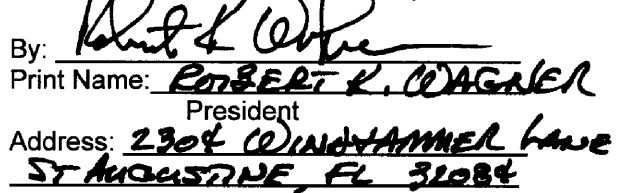 By: Robert K Wagner
Print Name: ROBERT K. WAGNER
President
Address: 2304 WINDJAMMER LANE
ST AUGUSTINE, FL 32084